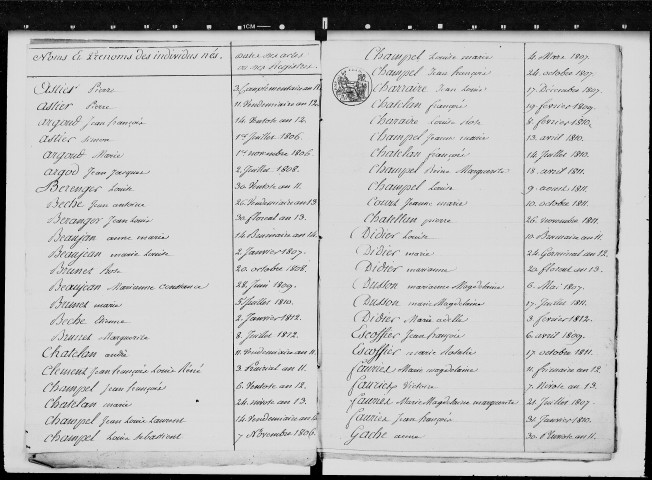 1CM
Noms et Prénoms des individus nés.
Dates des actes
ou des Registres
Astier Pierre 3 Complementaire an 11
astier Pierre 11 Vendemiaire an 12
argoud Jean françois 14 Ventose an 12.
astier simon 1er Juillet 1806.
argoud Marie 1er novembre 1806
argod Jean Jacques 2 Juillet 1808.
Berenger Louise 30 Ventose an 11.
Beche Jean antoine 26 Vendemiaire an 13
Beranger Jean Louis 30 floreal an 13.
Beaujon anne marie 14 Brumaire an 14
Beaujean marie Louise 2 Janvier 1807.
Brunet Rose 20 octobre 1808.
Beaujean Marianne Constance 28 Juin 1809.
Brunet marie 5 Juillet 1810.
Beche Etienne 2 Janvier 1812.
Brunet Marguerite 8 Juillet 1812.
Chatelan andré 11 Vendemiaire an 11.
Clement Jean françois Louis Réné 3 Prairial an 11.
Champel Jean françois 6 Ventose an 12.
Chatelan marie 24 nivose an 13.
Champel Jean Louis Laurent 14 Vendemiaire an 14
Champel Louis Sebastient 7 Novembre 1806.
Champel Louise marie 4 Mars 1807.
Champel Jean françois 24 octobre 1807.
Charraire Jean Louis 17 Décembre 1807.
Chatelan françois 19 février 1809.
Charaire Louise Rose 8 février 1810.
Champel Jeanne marie 13 avril 1810.
Chatelan françois 14 Juillet 1810.
Champel Reine Marguerite 18 avril 1811.
Champel Louise 9 aoust 1811.
Court Jeanne marie 10 octobre 1811.
Chatellan pierre 26 novembre 1811.
Didier Louise 10 Brumaire an 11.
Didier marie 24 Germinal an 12.
Didier marianne 20 floreal an 13.
Dusson marianne Magdelaine 6 Mai 1807.
Dusson marie Magdelaine 17 Juillet 1811.
Didier Marie adelle 3 février 1812.
Escoffier Jean françois 6 avril 1809.
Escoffier marie Rosalie 17 octobre 1811.
fauries Marie magdelaine 11 frimaire an 12.
fauries Victoire 7 Nivose an 13.
fauries Marie Magdelaine marguerite 21 Juillet 1807.
fauries Jean françois 31 Janvier 1810.
Gache anne 30 Pluviose an 11.